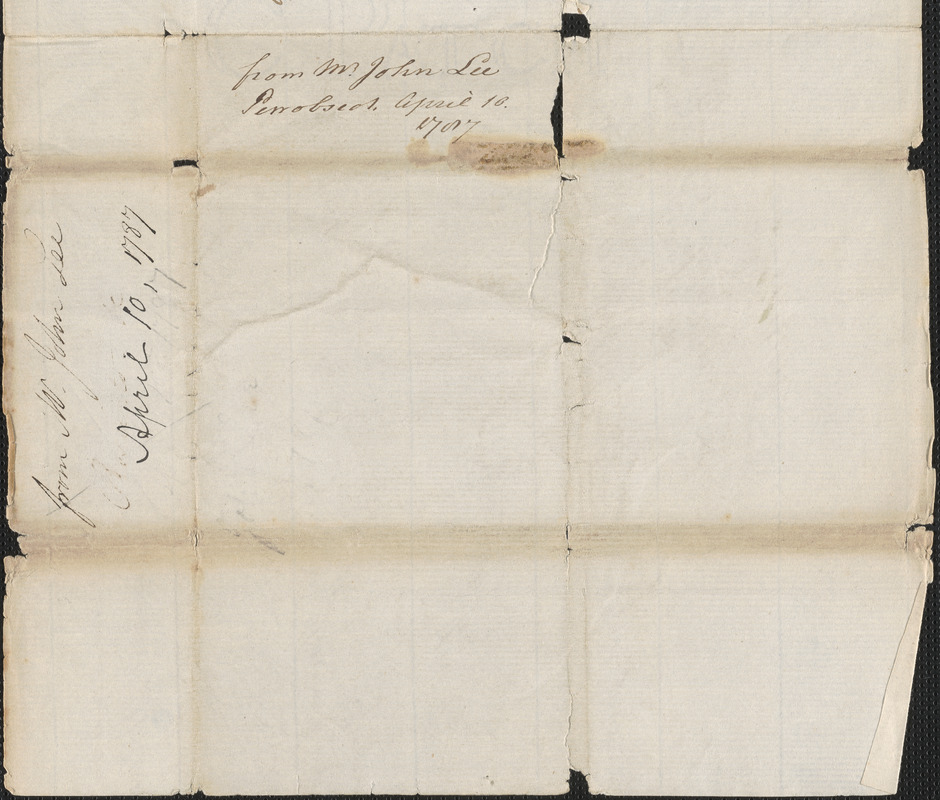 from Mr. John Lee
Penobscot. April 10.
1787
from Mr. John Lee
April 10, 1787